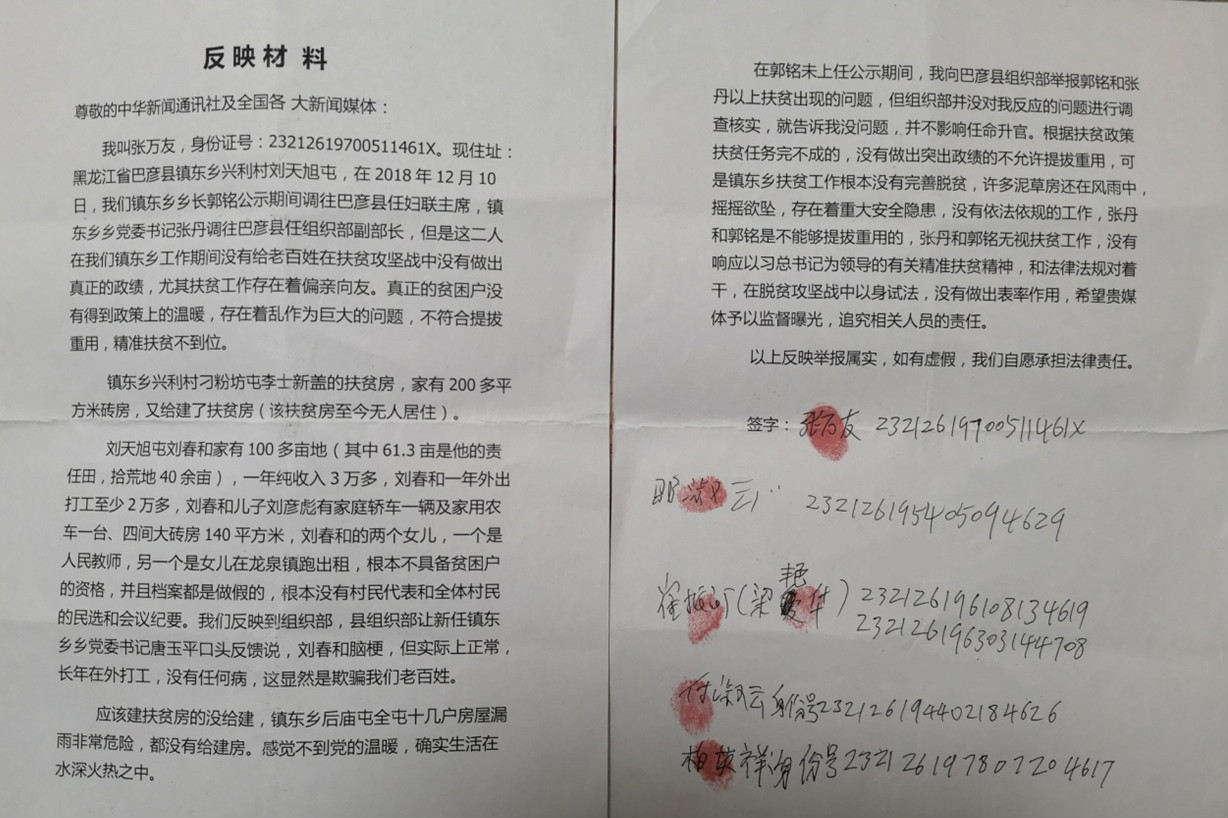 反映材料
尊敬的中华新闻通讯社及全国各 大新闻媒体：
我叫张万友，身份证号：23212619700511461X。现住址：
黑龙江省巴彦县镇东乡兴利村刘天旭屯，在 2018 年 12 月 10
日，我们镇东乡乡长郭铭公示期间调往巴彦县任妇联主席，镇
东乡乡党委书记张丹调往巴彦县任组织部副部长，但是这二人
在我们镇东乡工作期间没有给老百姓在扶贫攻坚战中没有做出
真正的政绩，尤其扶贫工作存在着偏亲向友。真正的贫困户没
有得到政策上的温暖，存在着乱作为巨大的问题，不符合提拔
重用，精准扶贫不到位。
镇东乡兴利村刁粉坊屯李士新盖的扶贫房，家有 200 多平
方米砖房，又给建了扶贫房（该扶贫房至今无人居住）。
刘天旭屯刘春和家有 100 多亩地（其中 61.3 亩是他的责
任田，拾荒地 40 余亩），一年纯收入 3 万多，刘春和一年外出
打工至少 2 万多，刘春和儿子刘彦彪有家庭轿车一辆及家用农
车一台、四间大砖房 140 平方米，刘春和的两个女儿，一个是
人民教师，另一个是女儿在龙泉镇跑出租，根本不具备贫困户
的资格，并且档案都是做假的，根本没有村民代表和全体村民
的民选和会议纪要。我们反映到组织部，县组织部让新任镇东
乡乡党委书记唐玉平口头反馈说，刘春和脑梗，但实际上正常，
长年在外打工，没有任何病，这显然是欺骗我们老百姓。
应该建扶贫房的没给建，镇东乡后庙屯全屯十几户房屋漏
雨非常危险，都没有给建房。感觉不到党的温暖，确实生活在
水深火热之中。
在郭铭未上任公示期间，我向巴彦县组织部举报郭铭和张
丹以上扶贫出现的问题，但组织部并没对我反应的问题进行调
查核实，就告诉我没问题，并不影响任命升官。根据扶贫政策
扶贫任务完不成的，没有做出突出政绩的不允许提拔重用，可
是镇东乡扶贫工作根本没有完善脱贫，许多泥草房还在风雨中，
摇摇欲坠，存在着重大安全隐患，没有依法依规的工作，张丹
和郭铭是不能够提拔重用的，张丹和郭铭无视扶贫工作，没有
响应以习总书记为领导的有关精准扶贫精神，和法律法规对着
干，在脱贫攻坚战中以身试法，没有做出表率作用，希望贵媒
体予以监督曝光，追究相关人员的责任。
以上反映举报属实，如有虚假，我们自愿承担法律责任。
签字：张万友 23212619700511461X
云 232126195405094629
崔振（梁艳华） 232126196108134619
232126196303144708
付淑云身份号232126194402184626
柏英祥身份号232126197807204617